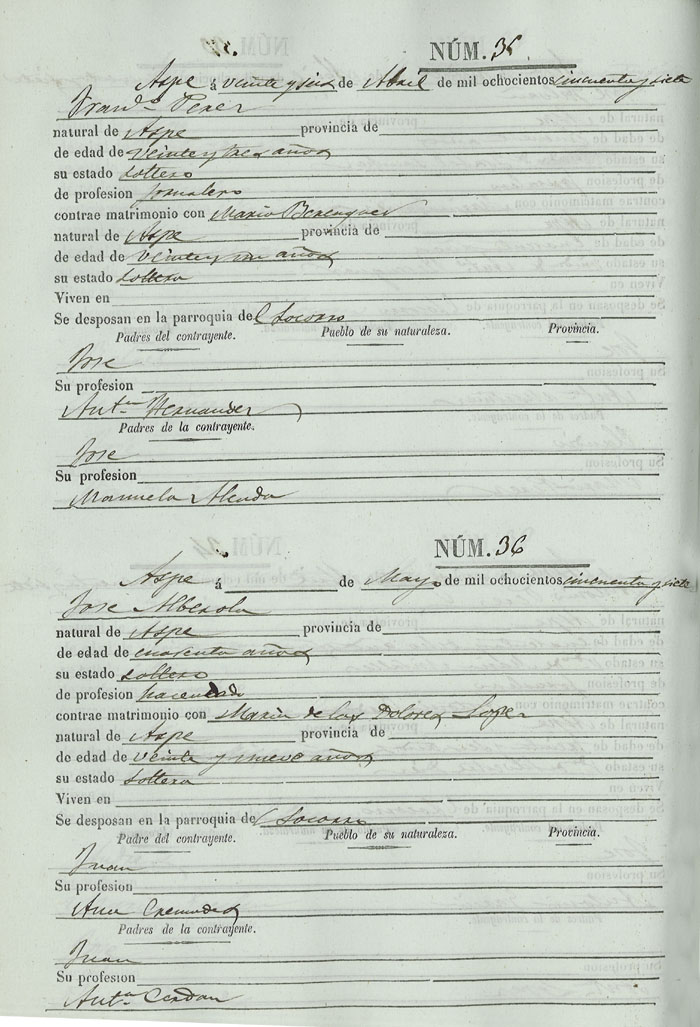 NÚM. 35
Aspe á veinte y seis de Abril de mil ochocientos cincuenta y siete
Fran.co Perez
natural de Aspe provincia de
de edad de veinte y tres años
su estado soltero
de profesion jornalero
contrae matrimonio con Maria Berenguer
natural de Aspe provincia de
de edad de veinte y un años
su estado soltera
Viven en
Se desposan en la parroquia del Socorro
Padres del contrayente. Pueblo de su naturaleza. Provincia.
Jose
Su profesion
Ant.a Hernandez
Padres de la contrayente.
Jose
Su profesion
Manuela Alenda
NÚM. 36
Aspe á de Mayo de mil ochocientos cincuenta y siete
Jose Alberola
natural de Aspe provincia de
de edad de cuarenta años
su estado soltero
de profesion hacendado
contrae matrimonio con Maria de los Dolores Lopez
natural de Aspe provincia de
de edad de veinte y nueve años
su estado soltera
Viven en
Se desposan en la parroquia del Socorro
Padre del contrayente. Pueblo de su naturaleza. Provincia.
Juan
Su profesion
Ana Cremades
Padres de la contrayente.
Juan
Su profesion
Ant.a Cerdan